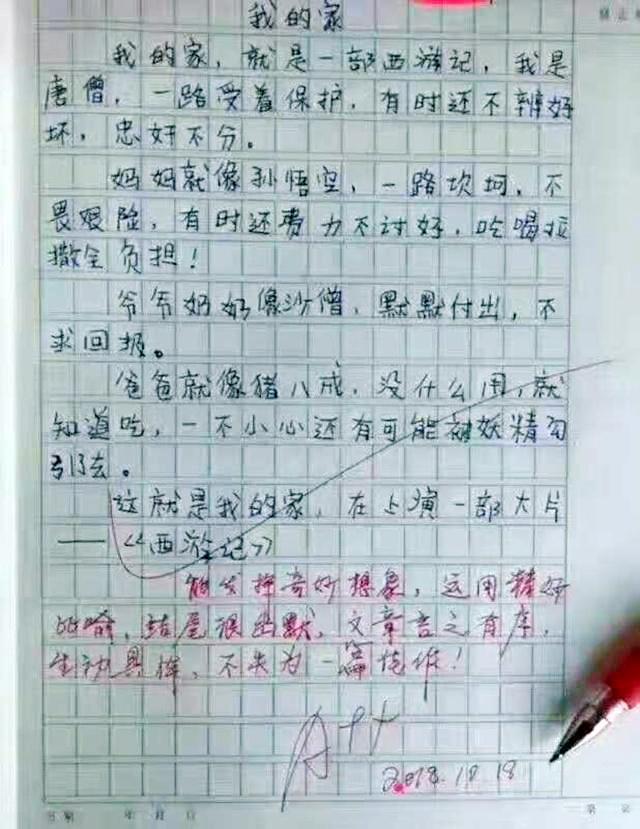 我的家
我的家，就是一部西游记，我是
唐僧，一路受着保护，有时还不辨好
坏，忠奸不分。
妈妈就像孙悟空，一路坎坷，不
畏艰险，有时还费力不讨好，吃喝拉
撒全负担！
爷爷奶奶像沙僧，默默付出，不
求回报。
爸爸就像猪八戒，没什么用，就
知道吃，一不小心还有可能被妖精勾
引了去。
这就是我的家，在上演一部大片
——《西游记》
能发挥奇妙想象，运用精妙
的喻，结尾很幽默，文章言之有序，
生动具体，不失为一篇佳作！
A++
2018.10.18